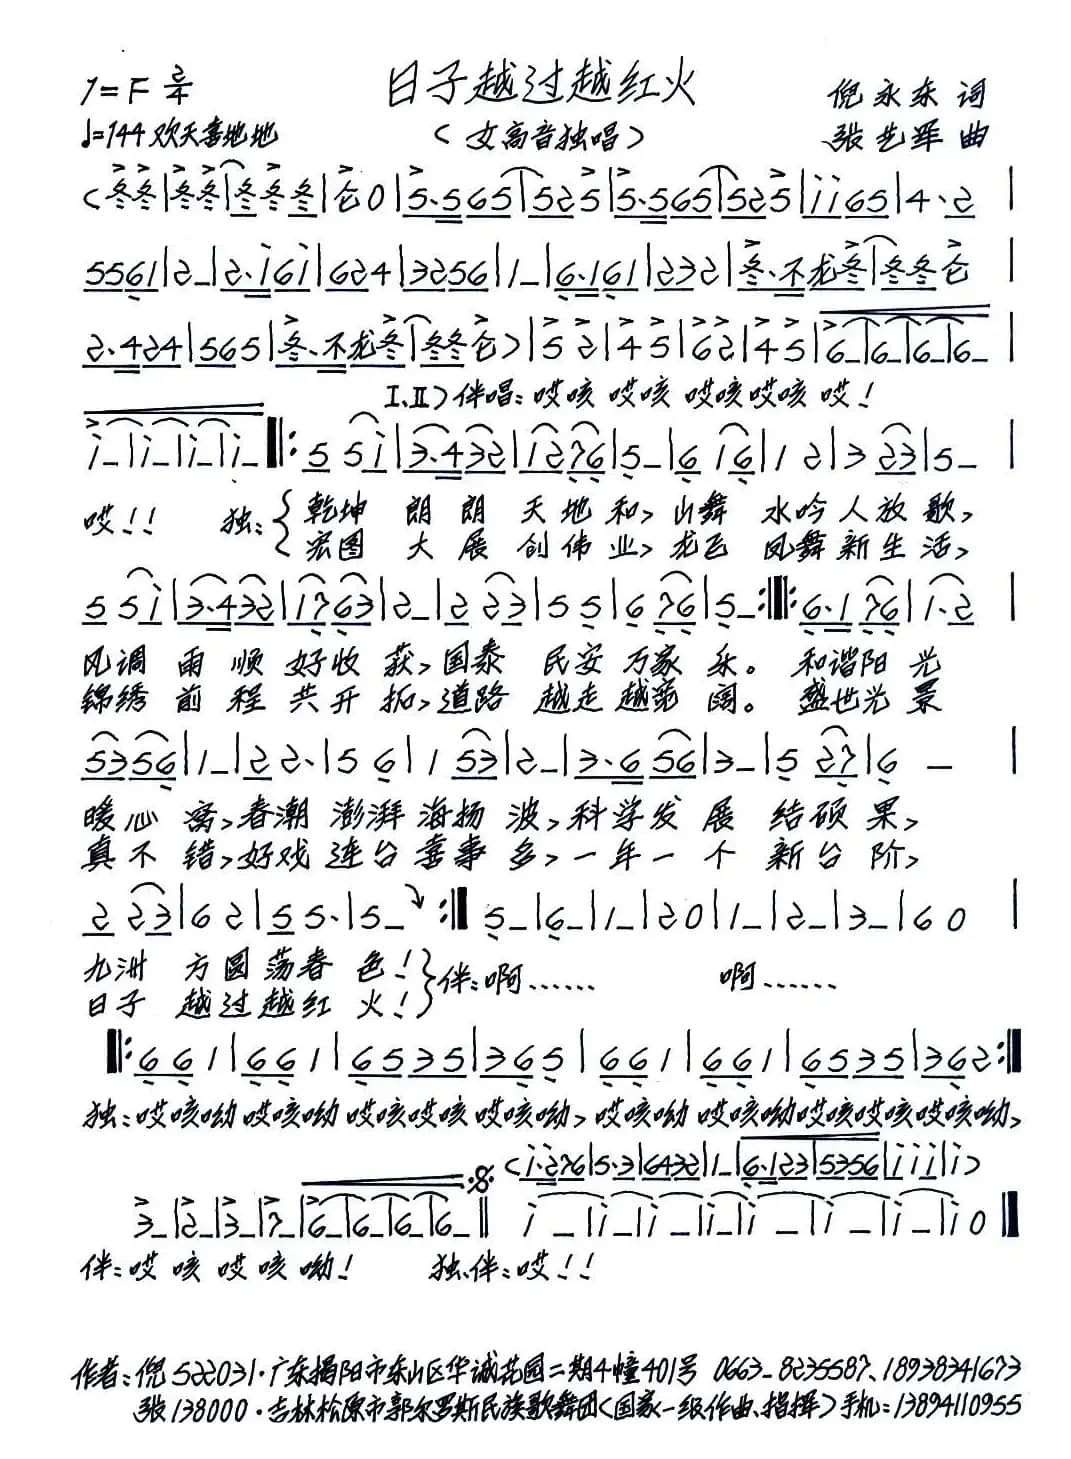 1=F 2/4 日子越过越红火 倪永东 词
♩=144 欢天喜地地 (女高音独唱) 张艺军 曲
(冬冬|冬冬|冬冬冬|仑0|5·565|525|5·565|525|i i65|4·2|
5561|2_|2·i6i|624|3256|1_|6·161|232|冬·不龙冬|冬冬仑|
2·424|565|冬·不龙冬|冬冬仑)|5 2|4 5|6 2|4 5|6_|6_|6_|6_|
I、II)伴唱:哎咳 哎咳 哎咳哎咳 哎!
i_|i_|i_|i_‖:5 5i|3·432|1276|5_|6 i6|1 2|3 23|5_|
哎!! 独:乾坤 朗朗 天地和,山舞 水吟人放歌,
宏图 大展 创伟业,龙飞 凤舞新生活,
5 5i|3·432|1763|2_|2 23|5 5|6 76|5_:‖:6·1 76|1·2|
风调 雨顺 好收获,国泰 民安万家乐。 和谐阳光
锦绣 前程 共开拓,道路 越走越宽阔。 盛世光景
5356|1_|2 2·|5 6|1 53|2_|3·6 56|3_|5 27|6 —|
暖心窝,春潮 澎湃海扬波,科学发展 结硕果,
真不错,好戏 连台喜事多,一年一个 新台阶,
2 23|6 2|5 5·|5_:‖5_|6_|1_|20|1_|2_|3_|6 0|
九洲 方圆荡春色! 伴:啊…… 啊……
日子 越过越红火!
‖:6 6 1|6 6 1|6535|365|6 6 1|6 6 1|6535|362:‖
独:哎咳呦 哎咳呦 哎咳哎咳 哎咳呦,哎咳呦 哎咳呦哎咳哎咳哎咳呦,
(i·276|5·3|6432|1_|6·123|5356|i i i|i)
3_|2_|3_|7_|6_|6_|6_|6_‖ i_|i_|i_|i_|i_|i_|i_|i0‖
伴:哎咳哎咳呦! 独、伴:哎!!
作者:倪 522031·广东揭阳市东山区华诚花园二期4幢401号 0663-8235587、18938341673
张 138000·吉林松原市郭尔罗斯民族歌舞团(国家一级作曲、指挥)手机:13894110955